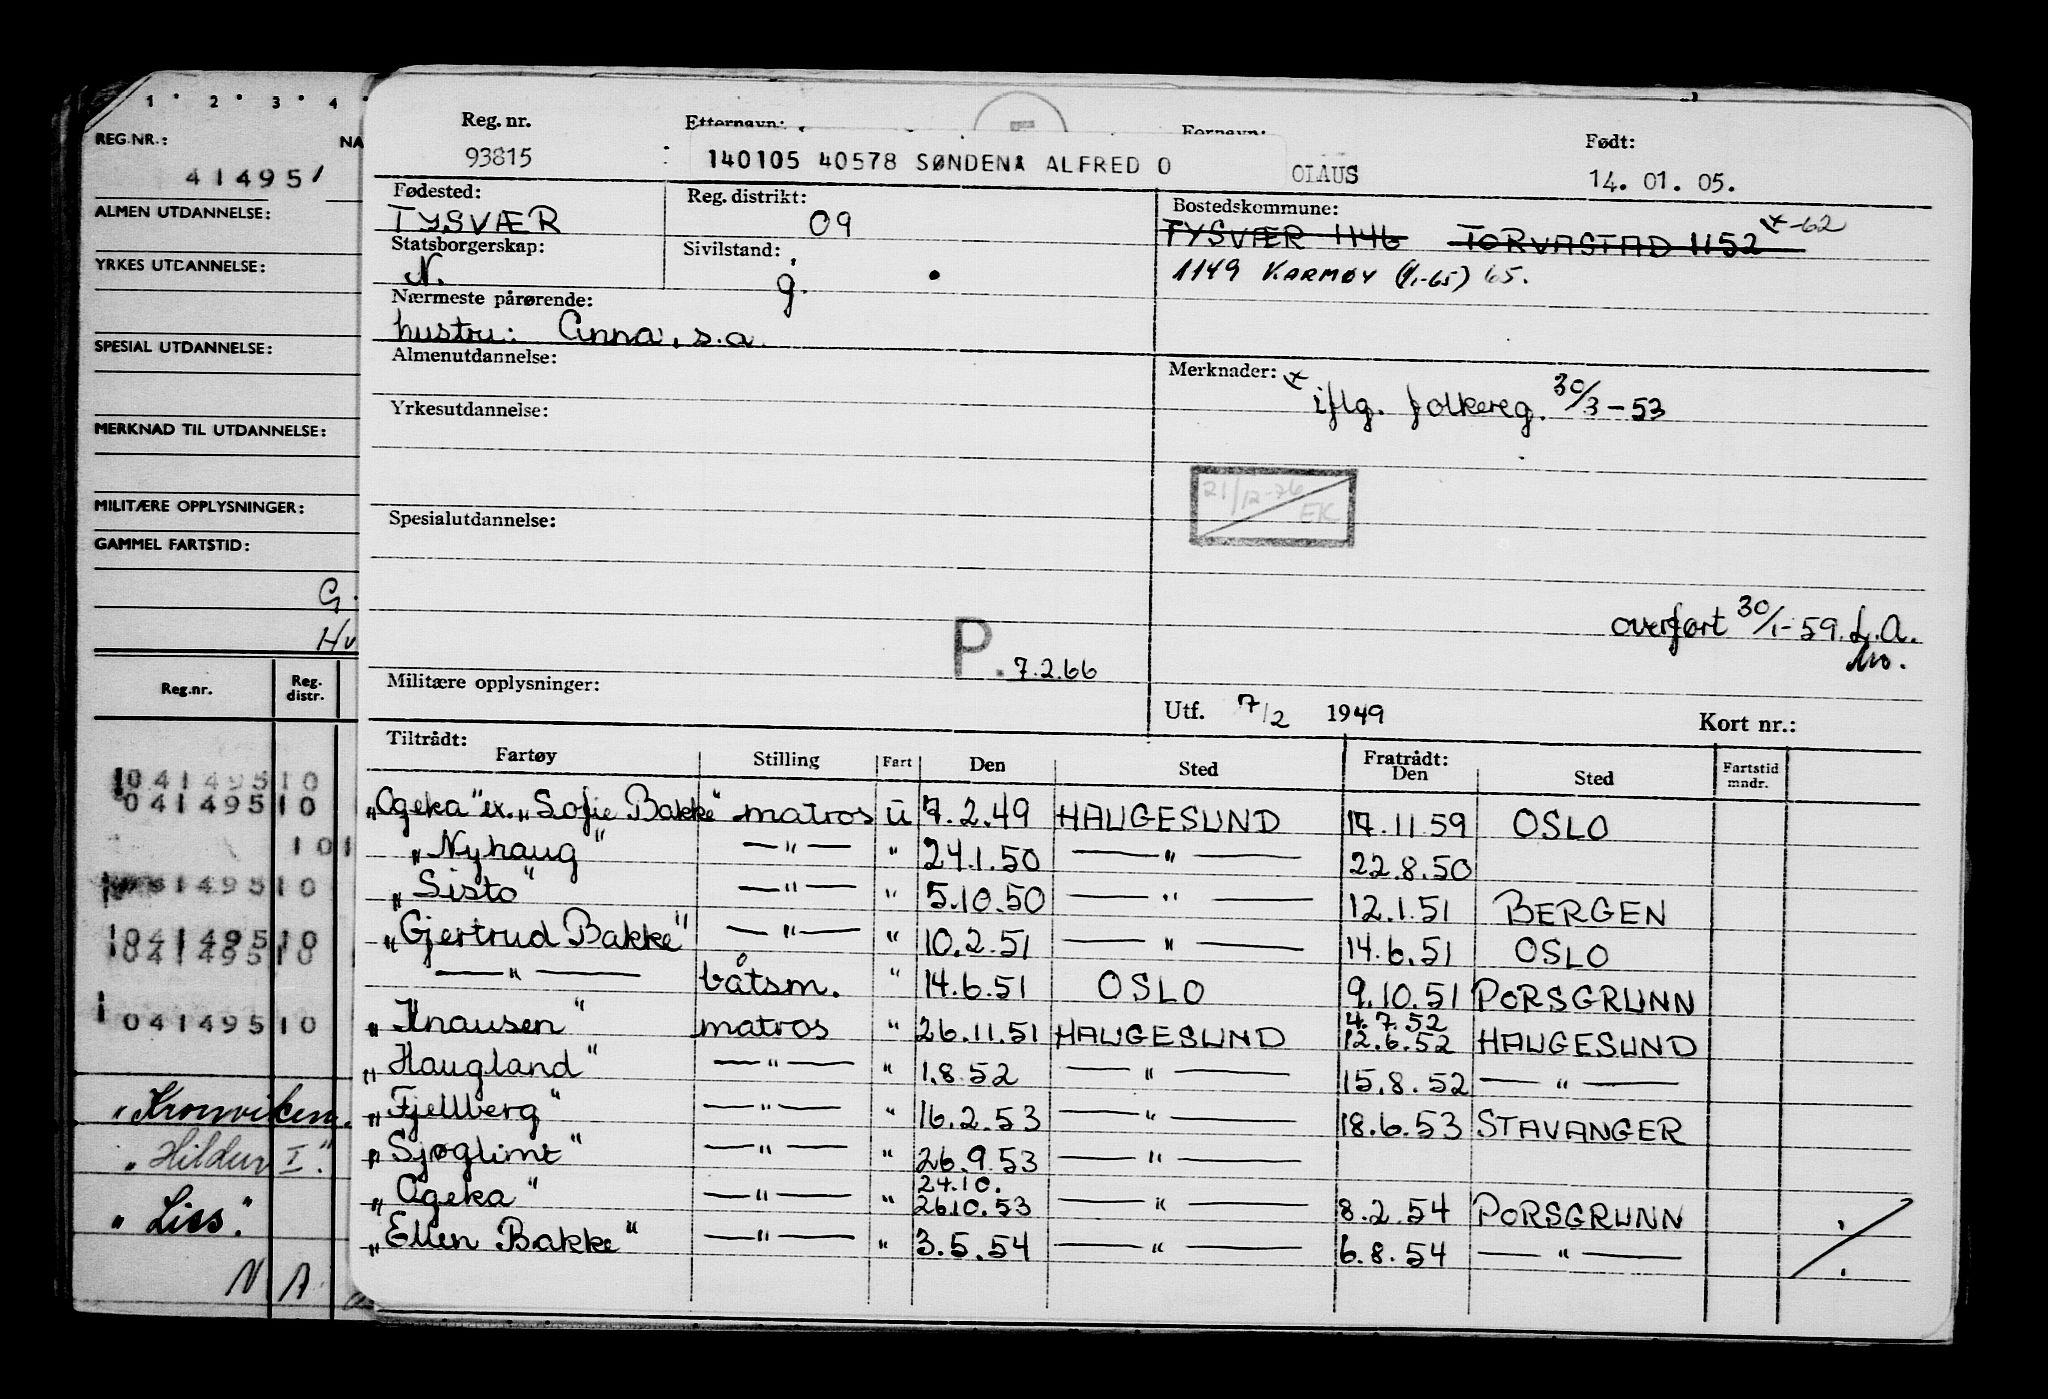 1 · 2 · 3 · 4 ·
REG.NR.: NA
414951
ALMEN UTDANNELSE:
YRKES UTDANNELSE:
SPECIAL UTDANNELSE:
MERKNAD TIL UTDANNELSE:
MILITÆRE OPPLYSNINGER:
GAMMEL FARTSTID:
G.
Hv
Reg.nr. Reg. distr.
1041495 10
0414951 0
101
41495 10
1041495 10
041495 10
1
0414951 0
"Kronviken
"Hildur I."
"Liss."
N A
Reg. nr. Etternavn: Fornavn: Født:
93815 140105 40578 SØNDENÅ ALFRED O OLAUS 14. 01. 05.
Fødested: Reg. distrikt: Bostedskommune:
TYSVÆR 09 TYSVÆR 1146 TORVASTAD 1152 x -62
Statsborgerskap: Sivilstand:
N. g. 1149 KARMØY (1/1-65) 65.
Nærmeste pårørende:
hustru: Anna, s.a.
Almenutdannelse: Merknader: x
iflg. folkereg. 30/3-53
Yrkesutdannelse:
21/12-76 EK
Spesialutdannelse:
overført 30/1-59. L.A.
P. 7.2.66
Militære opplysninger:
Utf. 7/2 1949 Kort nr.:
Tiltrådt: Fratrådt:
Fartøy Stilling Fart Den Sted Den Sted Fartstid mndr.
"Ogeka" ex. "Sofie Bakke" matros u 7.2.49 HAUGESUND 17.11.59 OSLO
"Nyhaug" —"— " 24.1.50 —"— 22.8.50
"Sisto" —"— " 5.10.50 —"— 12.1.51 BERGEN
"Gjertrud Bakke" —"— " 10.2.51 —"— 14.6.51 OSLO
—"— båtsm. " 14.6.51 OSLO 9.10.51 PORSGRUNN
4.7.52
"Knausen" matros " 26.11.51 HAUGESUND 12.6.52 HAUGESUND
"Haugland" —"— " 1.8.52 —"— 15.8.52 —"—
"Fjellberg" —"— " 16.2.53 —"— 18.6.53 STAVANGER
"Sjøglimt" —"— " 26.9.53 —"—
24.10.
"Ogeka" —"— " 26.10.53 —"— 8.2.54 PORSGRUNN
"Ellen Bakke" —"— " 3.5.54 —"— 6.8.54 —"—